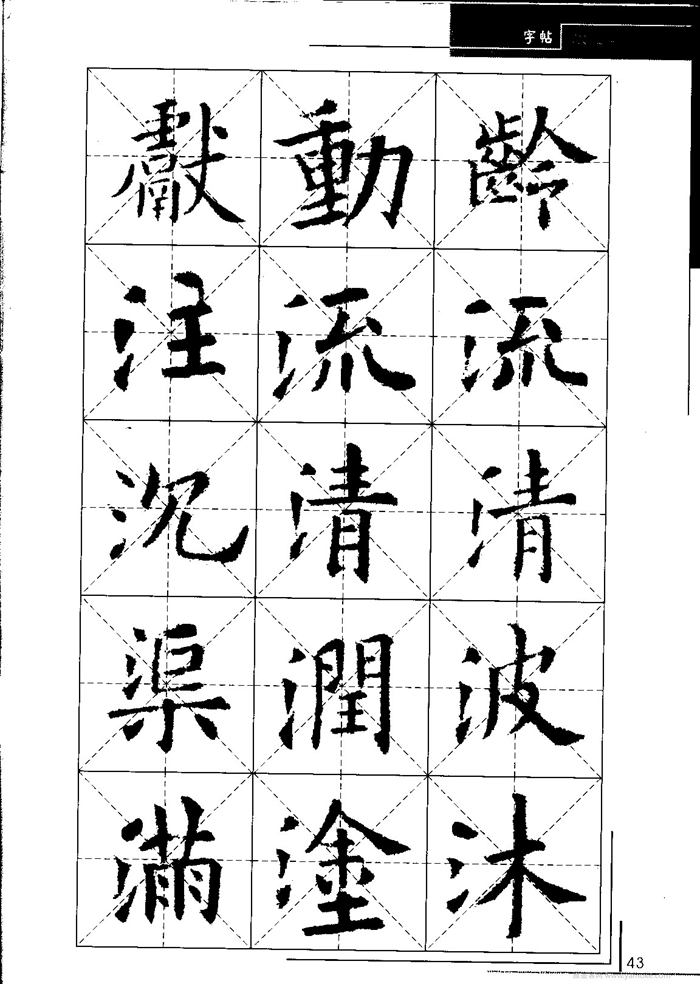 字帖
齡流清波沐
動流清潤塗
獻注沉渠滿
43